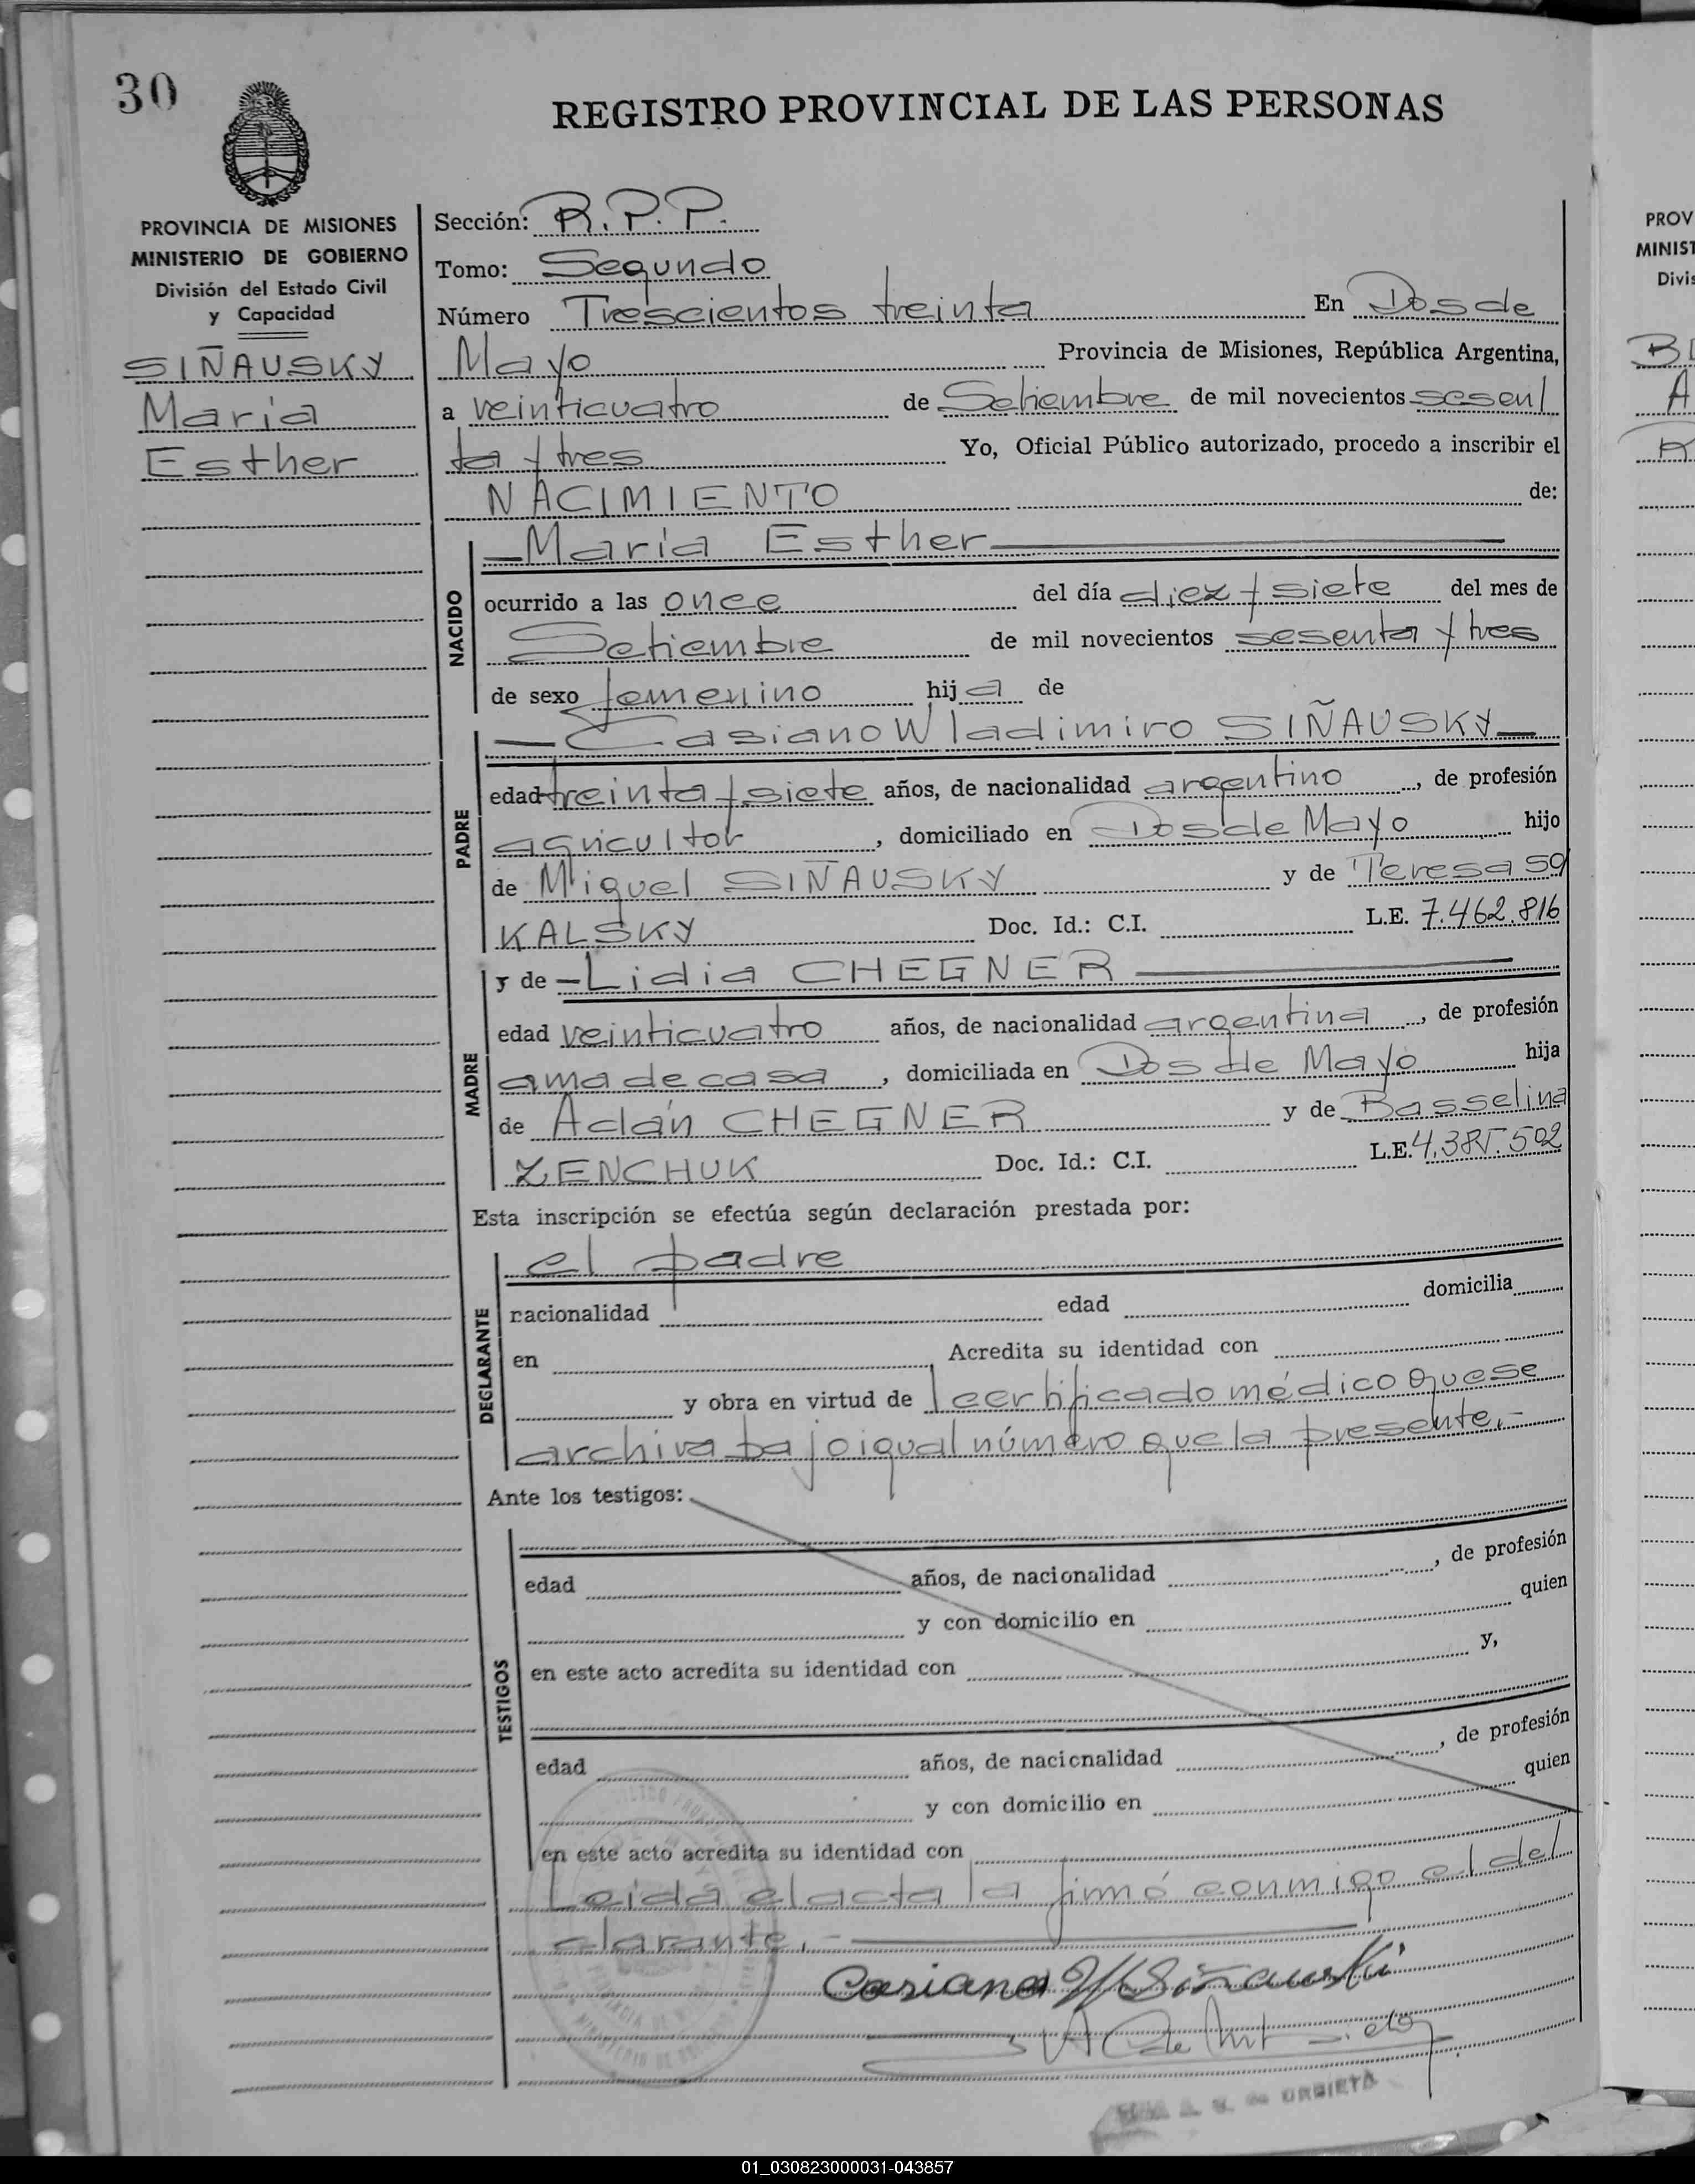 30
REGISTRO PROVINCIAL DE LAS PERSONAS
PROVINCIA DE MISIONES
MINISTERIO DE GOBIERNO
División del Estado Civil
y Capacidad
SIÑAUSKY
María
Esther
Sección: R.P.P.
Tomo: Segundo
Número Trescientos treinta En Dos de
Mayo Provincia de Misiones, República Argentina,
a veinticuatro de Setiembre de mil novecientos sesen
ta y tres Yo, Oficial Público autorizado, procedo a inscribir el
NACIMIENTO de:
NACIDO
—María Esther—
ocurrido a las once del día diez y siete del mes de
Setiembre de mil novecientos sesenta y tres
de sexo femenino hija de
PADRE
—Casiano Wladimiro SIÑAUSKY—
edad treinta y siete años, de nacionalidad argentino, de profesión
agricultor, domiciliado en Dos de Mayo hijo
de Miguel SIÑAUSKY y de Teresa SO
KALSKY Doc. Id.: C.I. L.E. 7.462.816
MADRE
y de —Lidia CHEGNER—
edad veinticuatro años, de nacionalidad argentina, de profesión
ama de casa, domiciliada en Dos de Mayo hija
de Adán CHEGNER y de Basselina
ZENCHUK Doc. Id.: C.I. L.E. 4.385.502
Esta inscripción se efectúa según declaración prestada por:
DECLARANTE
el padre
nacionalidad edad domicilia
en Acredita su identidad con
y obra en virtud de certificado médico que se
archiva bajo igual número que la presente.-
Ante los testigos:
TESTIGOS
edad años, de nacionalidad , de profesión
y con domicilio en quien
en este acto acredita su identidad con y,
edad años, de nacionalidad , de profesión
y con domicilio en quien
en este acto acredita su identidad con
Leída el acta la firmó conmigo el de
clarante.-
Casiano W Siñauski
de URBIETA
PROV
MINIST
Divis
01_030823000031-043857